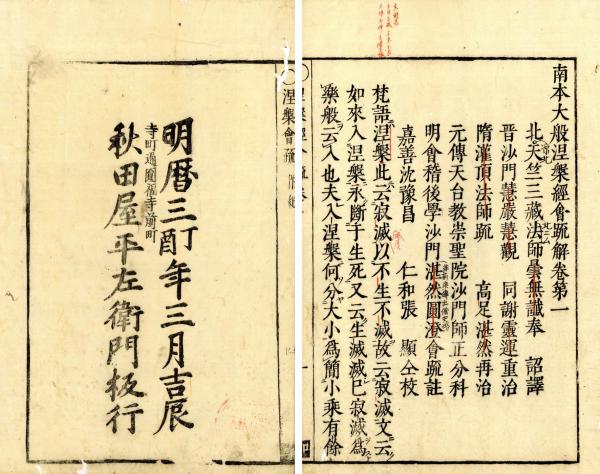 南本大般涅槃經會疏解卷第一
北天竺三藏法師曇無讖奉　詔譯
晉沙門慧嚴慧觀　同謝靈運重治
隋灌頂法師疏　高足湛然再治
元傳天台教崇聖院沙門師正分科
明會稽後學沙門湛然圓澄會疏註
嘉善沈豫昌　仁和張　顯仝校
梵語涅槃此云寂滅以不生不滅故云寂滅文云
如來入涅槃永斷于生死又云生滅滅已寂滅爲
樂般云入也夫入涅槃何分大小爲簡小乘有餘
涅槃會疏
明曆三丁酉年三月吉辰
寺町通圓福寺前町
秋田屋平左衛門板行